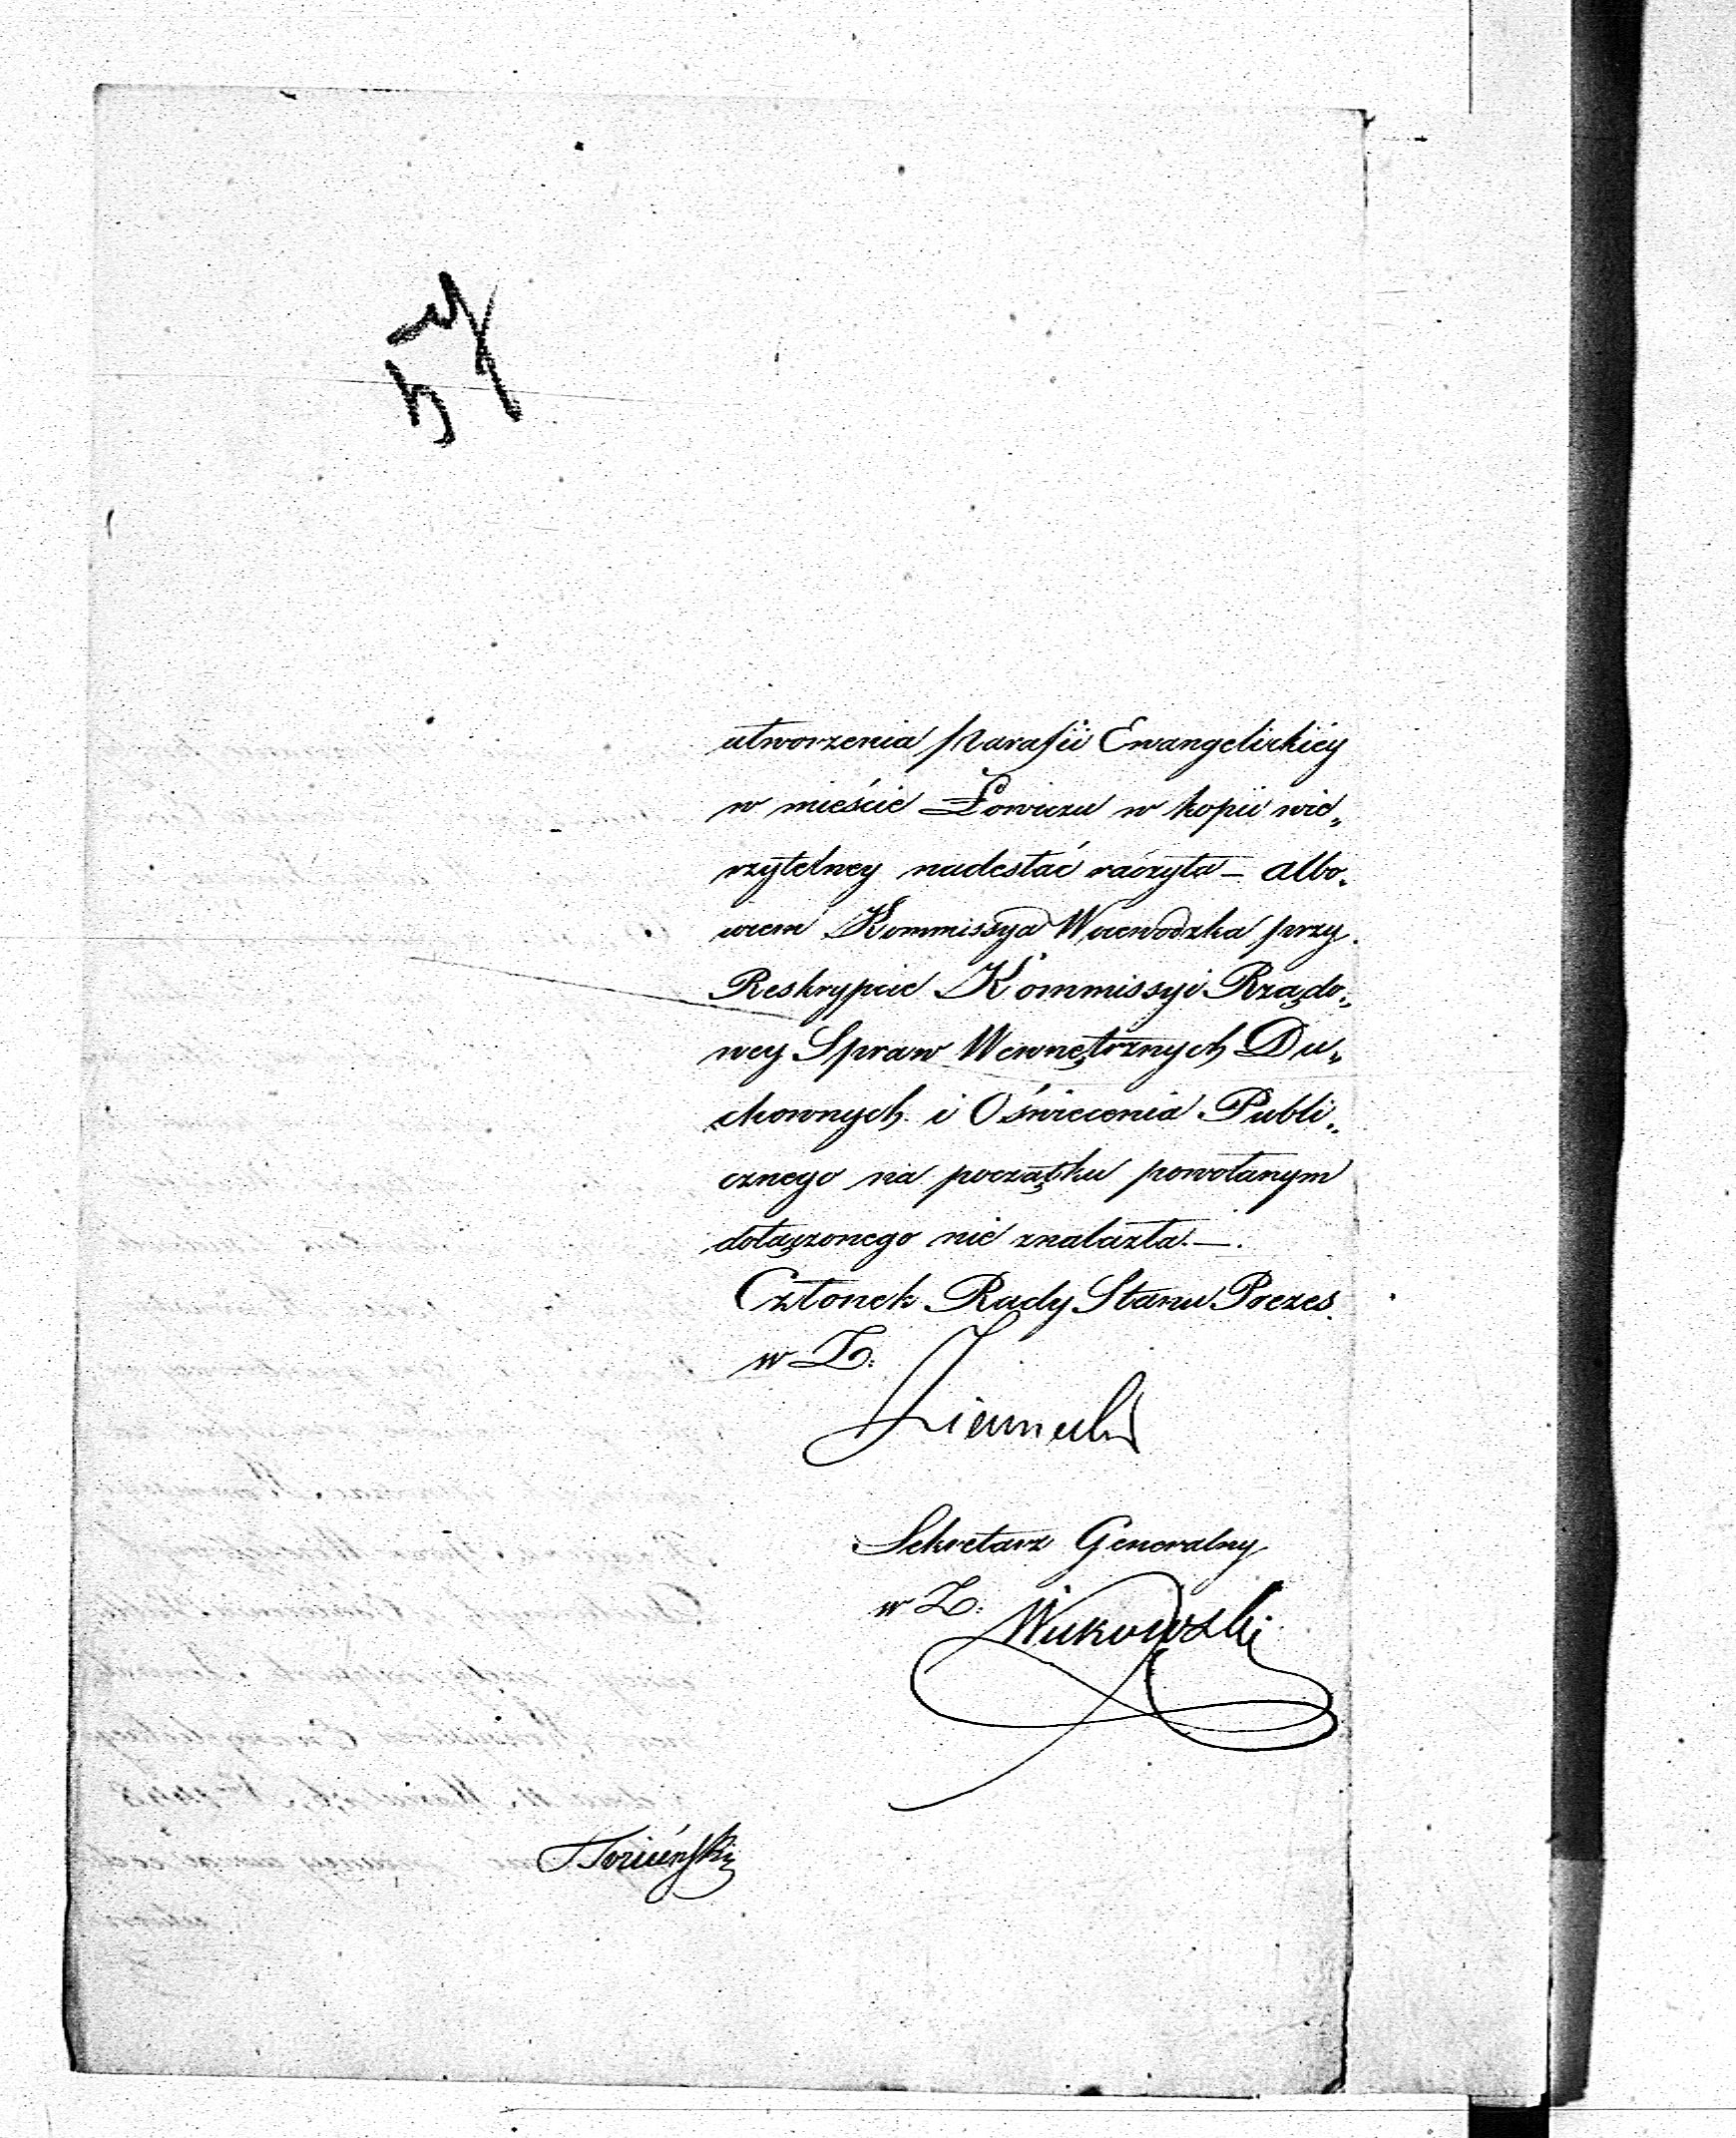 utworzenia Parafii Ewangelickiéy
w mieście Łowiczu w kopii wie„
rzytelney nadesłać raczyła — albo„
wiem Kommissya Woiewodzka przy
Reskrypcie Kommissyi Rządo„
wey Spraw Wewnętrznych Du„
chownych i Oświecenia Publi„
cznego na początku powołanym
dołączonego nie znalazła. —.
Członek Rady Stanu Prezes
w Z:
Sekretarz Generalny
w Z: